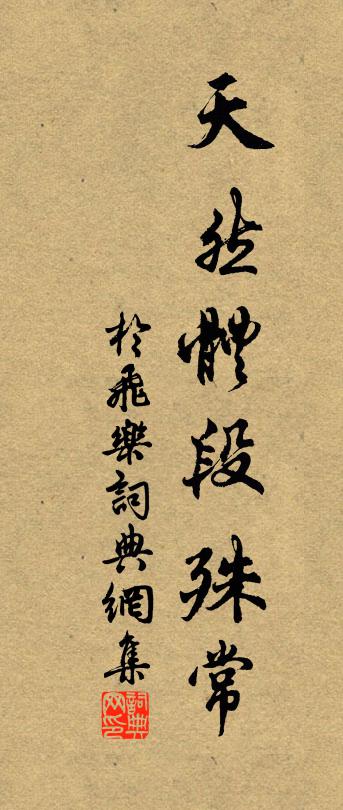 天然體段殊常
於飛樂詞典網集
詞典
网印